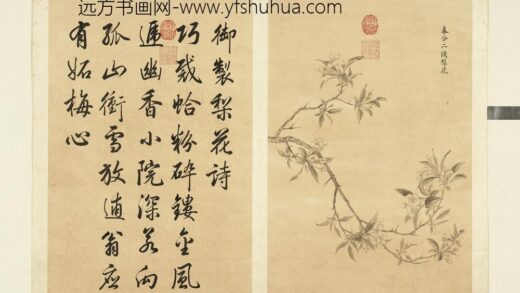 远方书画网- www.yfshuhua.com
春分二候梨花
御製梨花詩
巧裁蛤粉碎鏤金風
遞幽香小院深若向
孤山衝雪放逋翁應
有妬梅心